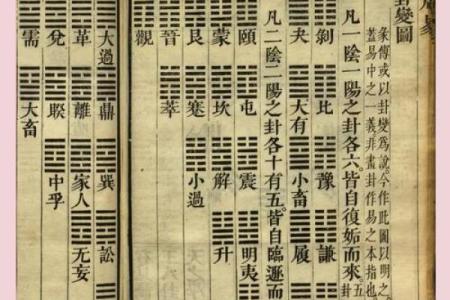 周易
卦變圖
彖傳或以卦變爲說。今作此圖以明之。
蓋易中之一義。非畫卦作易之本指也
凡一陰一陽之卦各六。皆自復姤而來
剝 比 豫 謙
夬 大有 小畜 履
凡二陰二陽之卦各十有五。皆自臨遯而
頤 屯 震 明夷
蒙 坎 解 升
艮 蹇 小過
晉 萃
觀
大過 鼎 巽 訟
革 離 家人 无妄
兌 睽 中孚
需 大畜